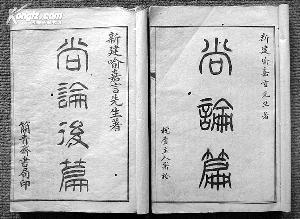 新建喻嘉言先生著
尚論篇
新建喻嘉言先生著
尚論後篇
簡青齋書局印